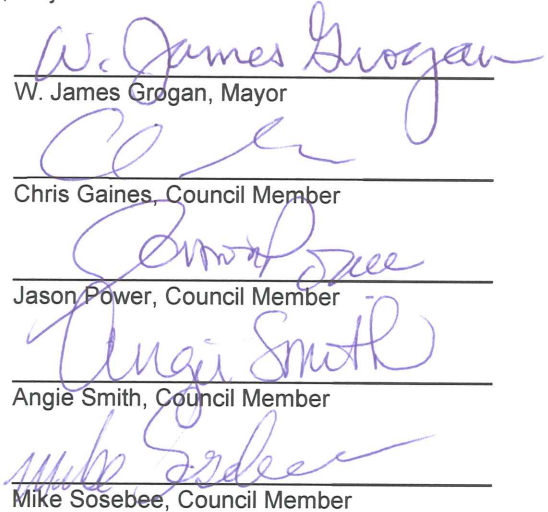 W. James Grogan
W. James Grogan, Mayor
Chris Gaines, Council Member
Jason Power
Jason Power, Council Member
Angie Smith
Angie Smith, Council Member
Mike Sosebee
Mike Sosebee, Council Member